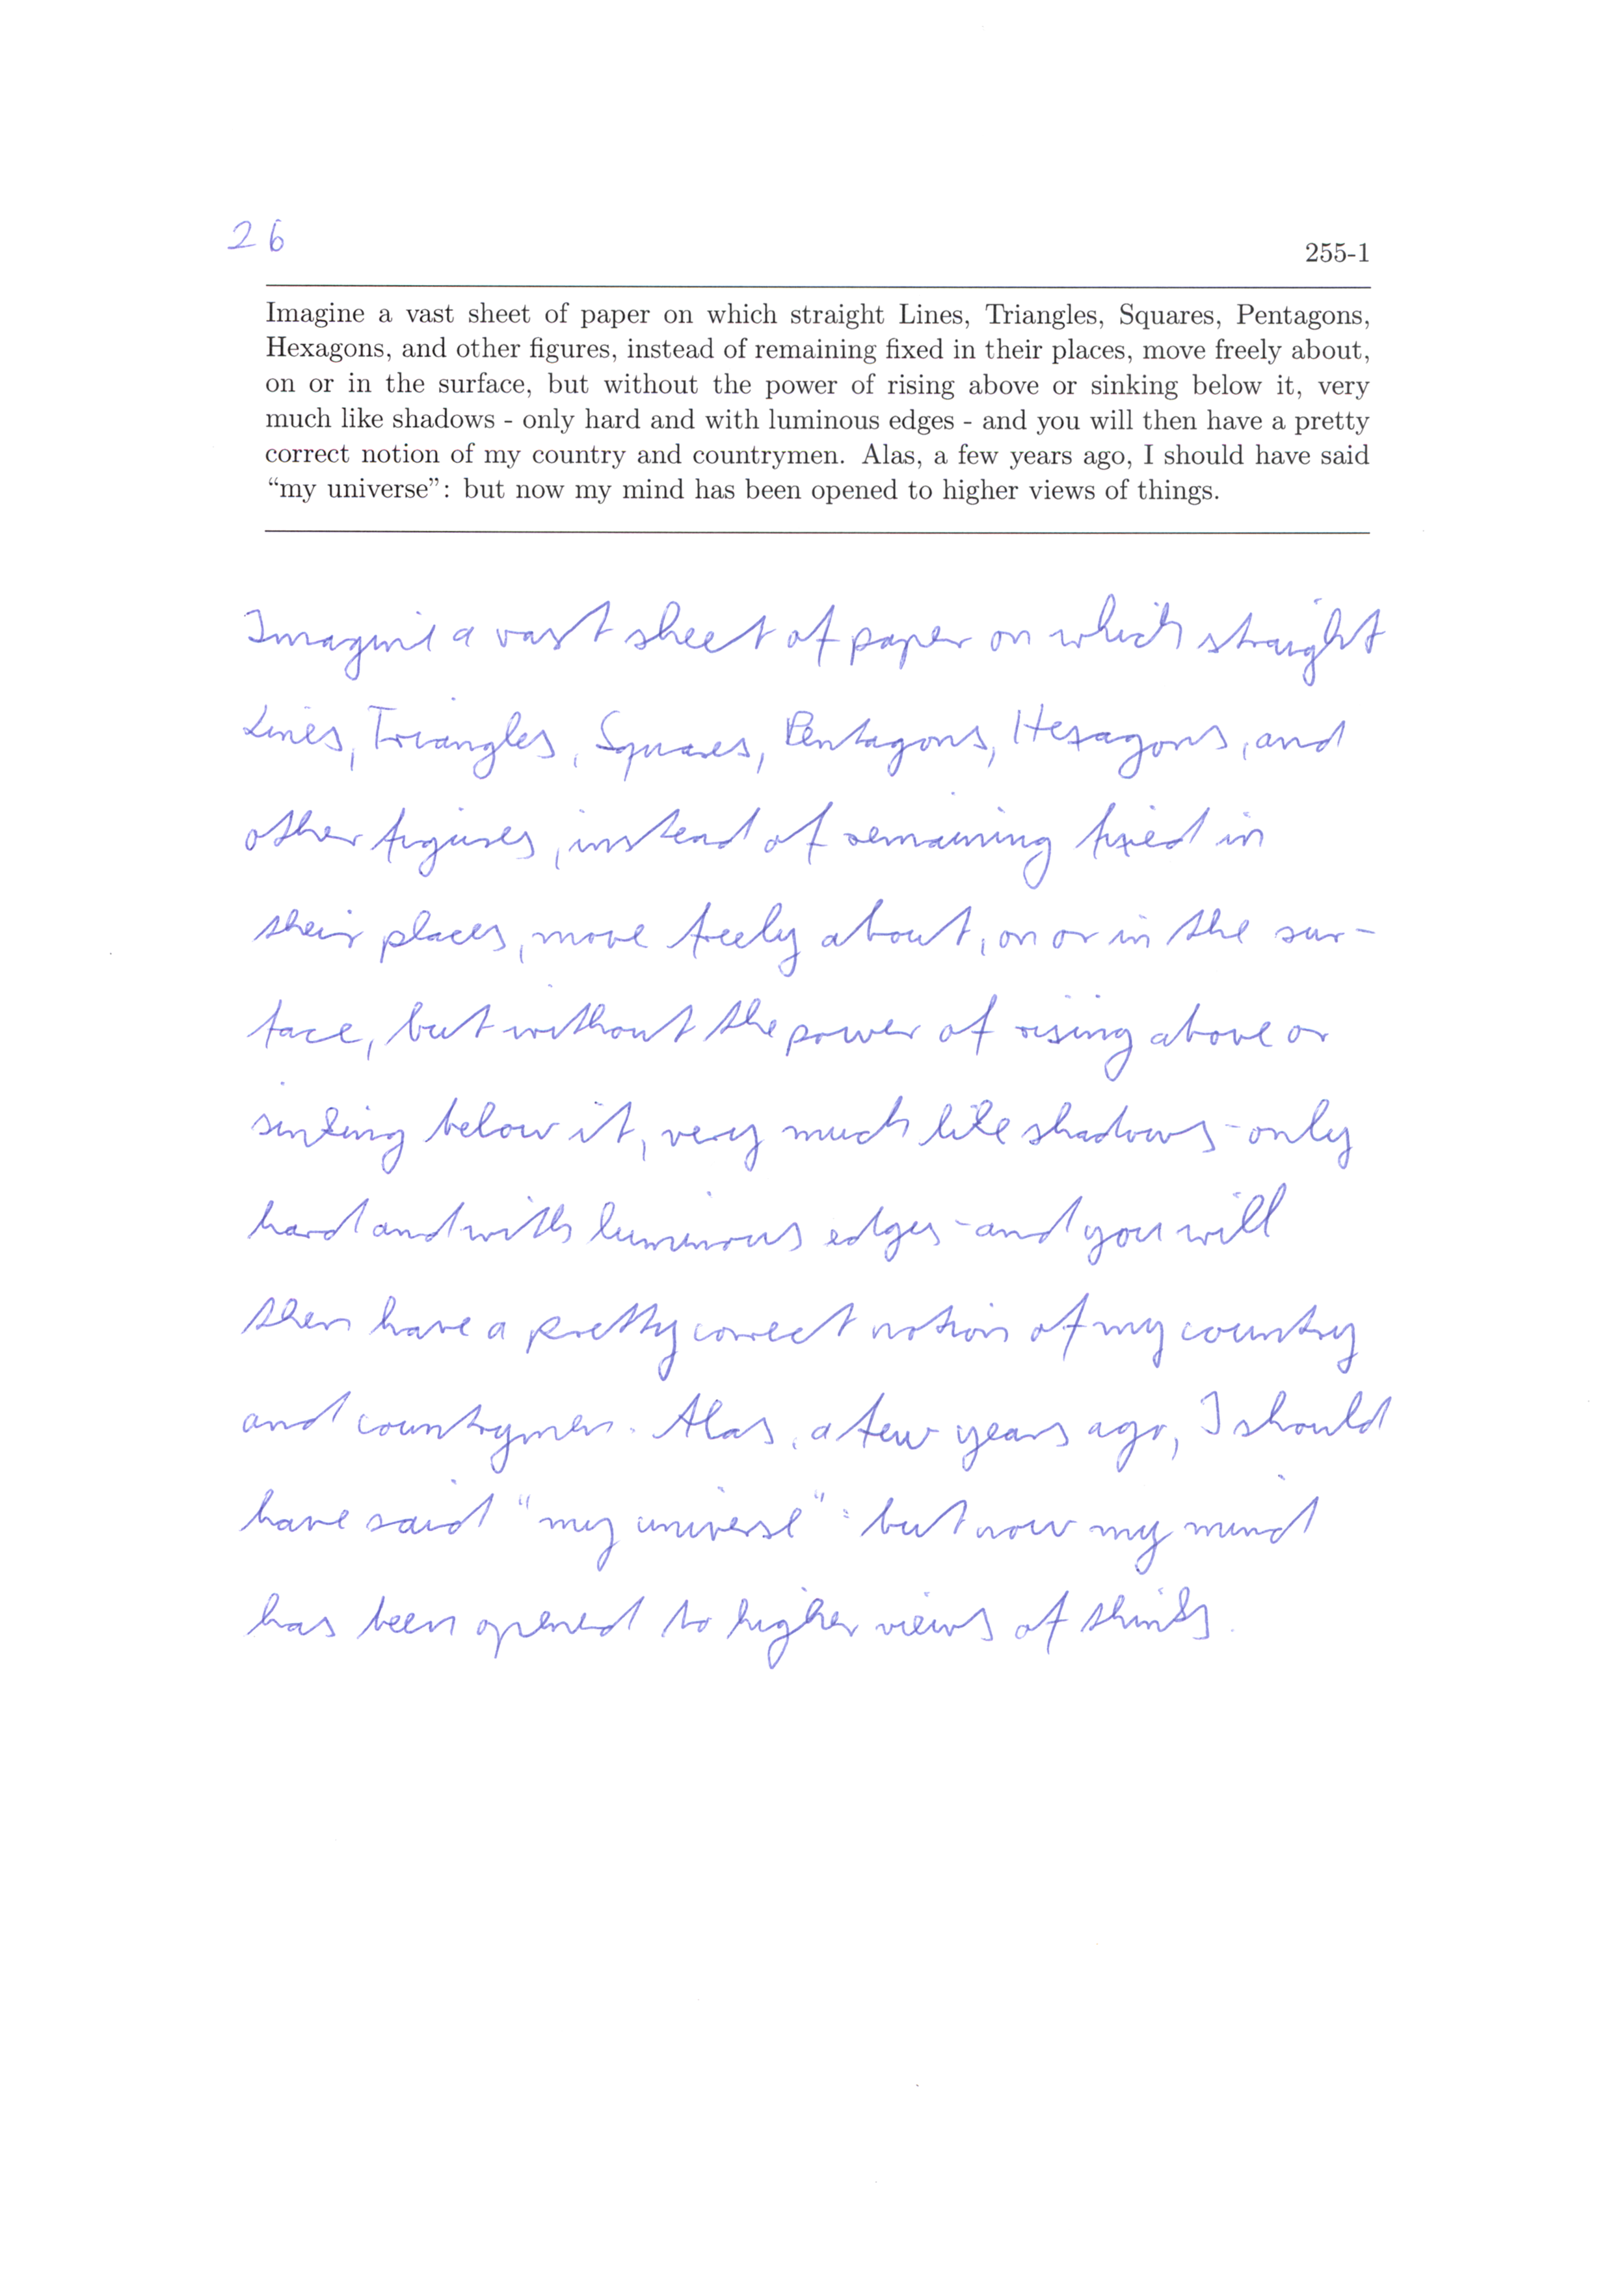 26
255-1
Imagine a vast sheet of paper on which straight Lines, Triangles, Squares, Pentagons,
Hexagons, and other figures, instead of remaining fixed in their places, move freely about,
on or in the surface, but without the power of rising above or sinking below it, very
much like shadows - only hard and with luminous edges - and you will then have a pretty
correct notion of my country and countrymen. Alas, a few years ago, I should have said
“my universe”: but now my mind has been opened to higher views of things.
Imagine a vast sheet of paper on which straight
Lines, Triangles, Squares, Pentagons, Hexagons, and
other figures, instead of remaining fixed in
their places, move freely about, on or in the sur-
face, but without the power of rising above or
sinking below it, very much like shadows - only
hard and with luminous edges - and you will
then have a pretty correct notion of my country
and countrymen. Alas, a few years ago, I should
have said "my universe": but now my mind
has been opened to higher views of thinks.